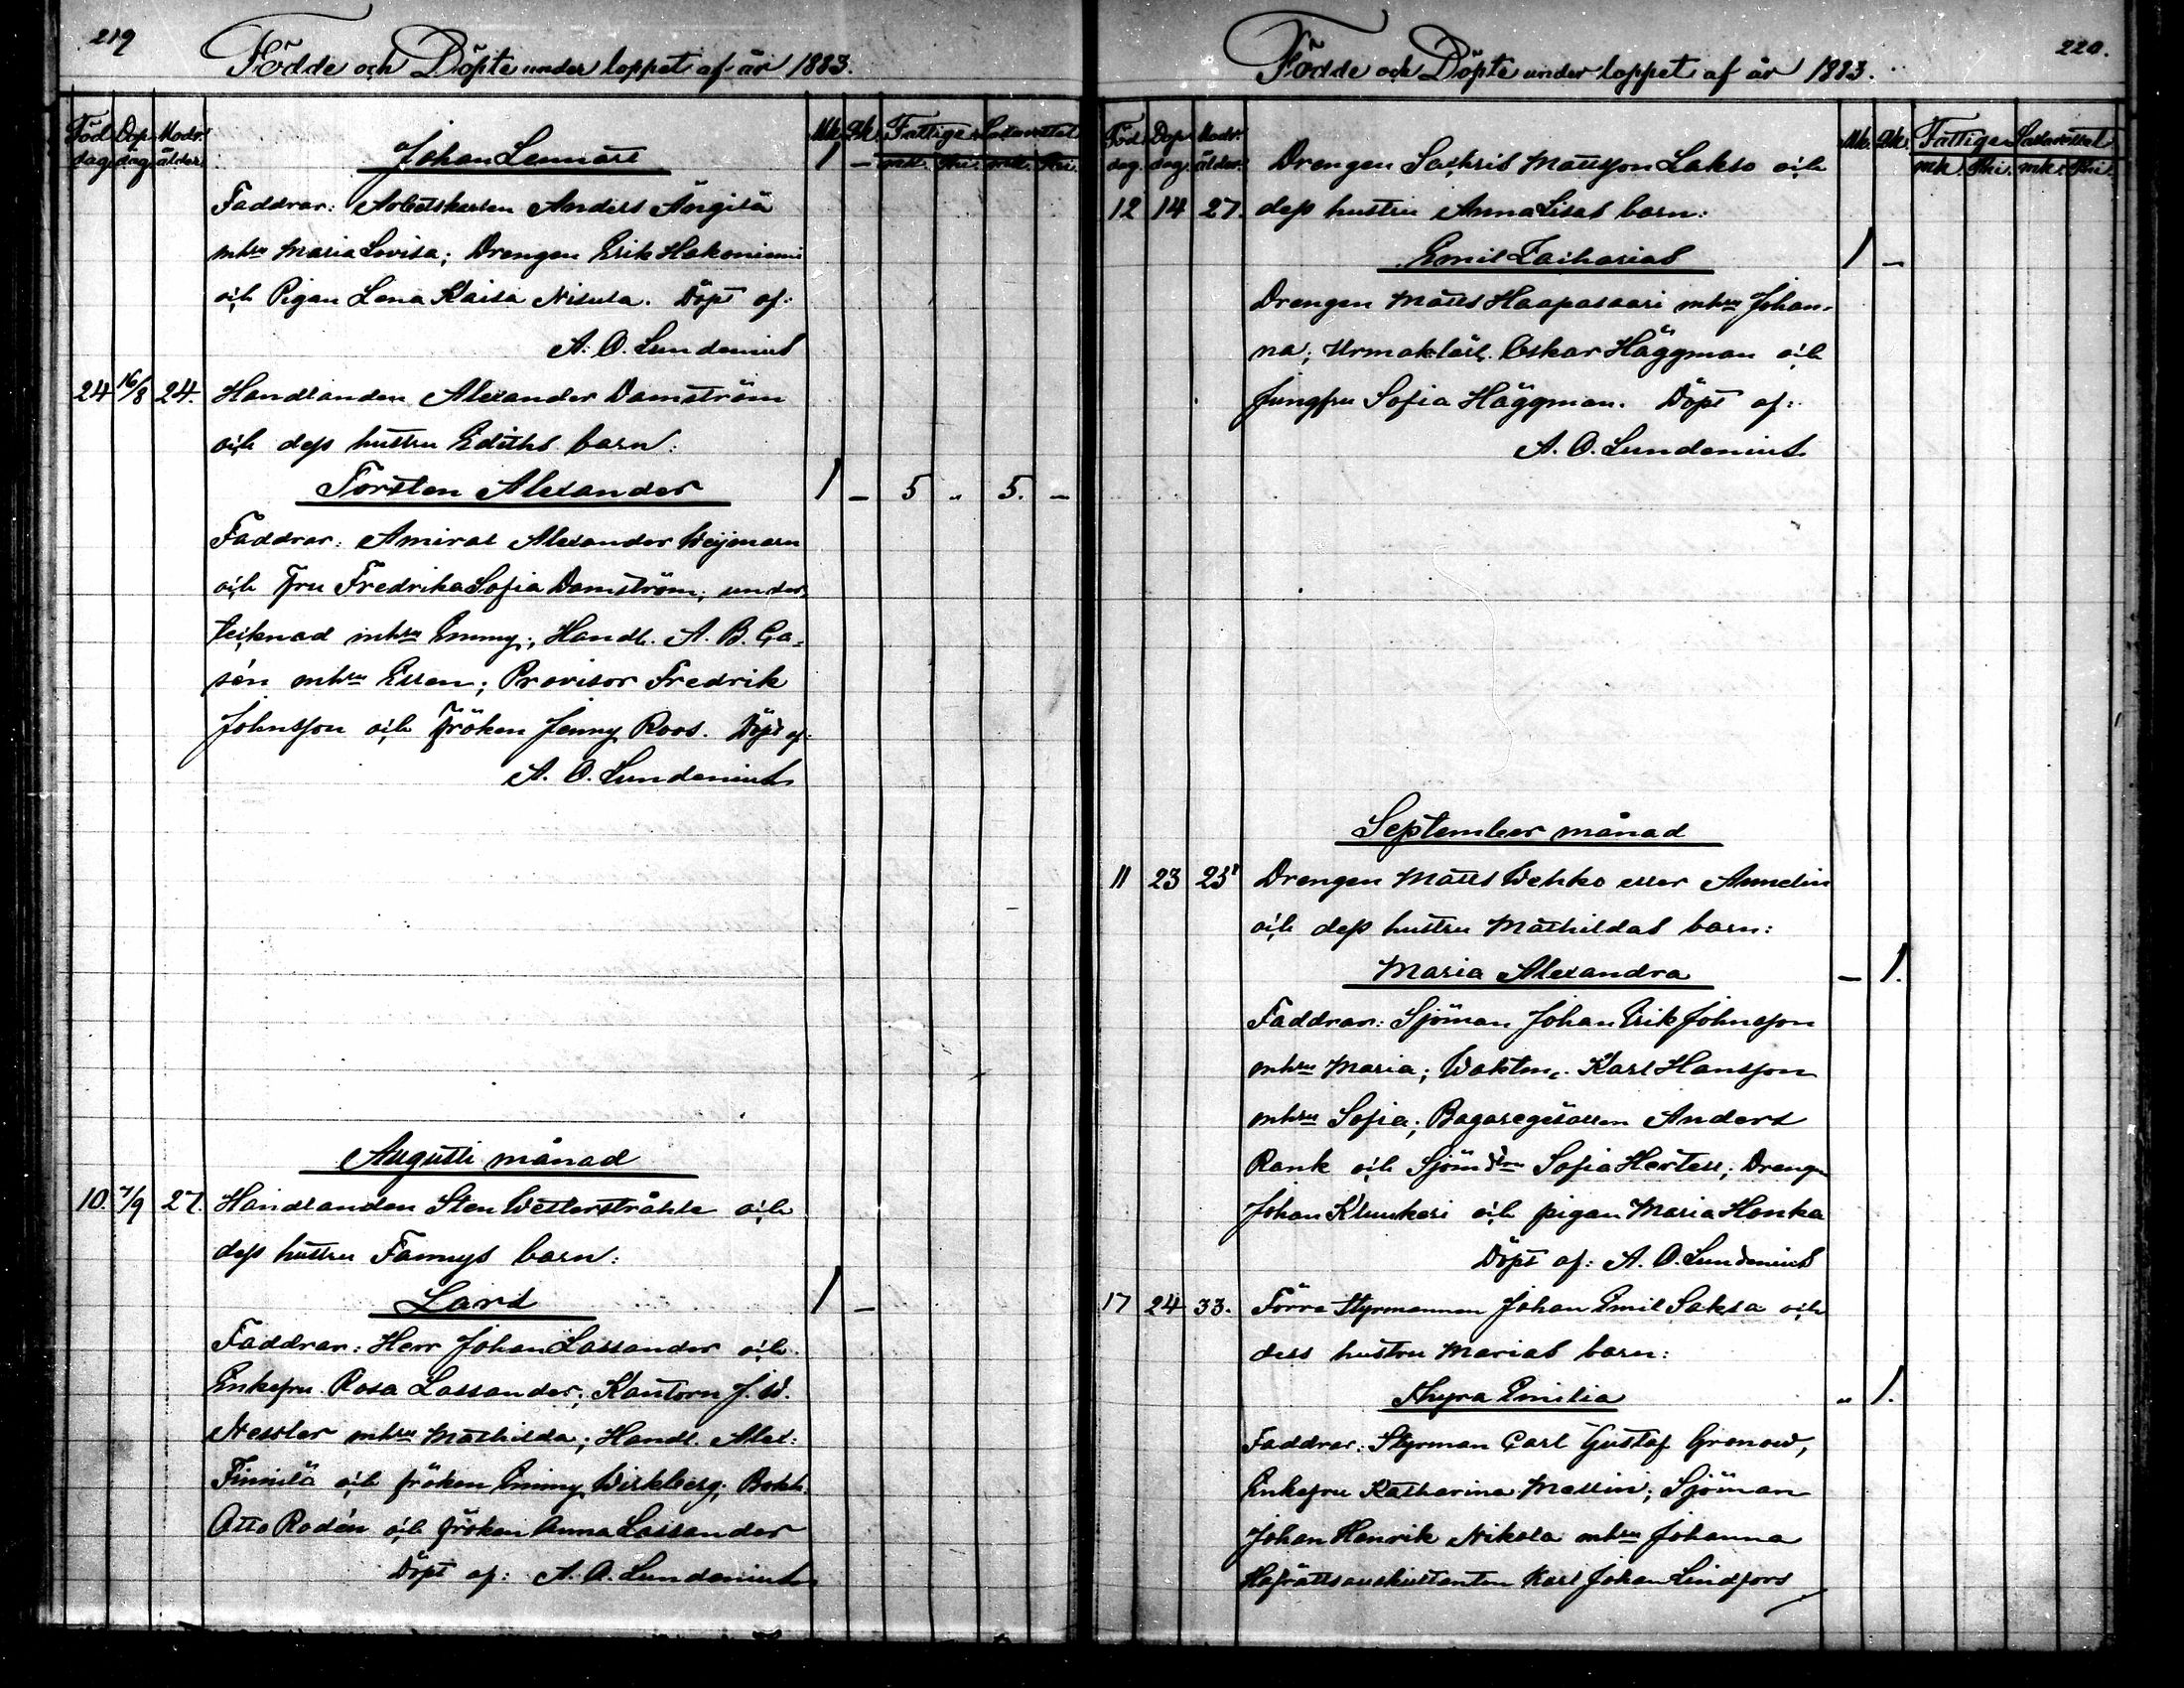 219
Födde och Döpte under loppet af år 1883.
Föd. dag. Döp. dag. Modr. ålder. Mk. Qk. Fattige Lasarettet
mk. Pni. mk. Pni.
Johan Lennart 1 –
Faddrar: Arbetskarlen Anders Ängilä
mhru Maria Lovisa; Drengen Erik Hakoniemi
och Pigan Lena Kaisa Nisula. Döpt af:
A. O. Lundenius
24 16/8 24. Handlanden Alexander Damström
och dess hustru Ediths barn:
Torsten Alexander 1 – 5 „ 5. –
Faddrar: Amiral Alexander Weijmarn
och Fru Fredrika Sofia Damström, under
tecknad mhru Emmy; Handl. A. B. Ga-
sén mhru Ellen; Provisor Fredrik
Johnsson och Fröken Jenny Roos. Döpt af:
A. O. Lundenius
Augusti månad
10. 7/9 27. Handlanden Sten Wetterstråhle och
dess hustru Fannys barn:
Lars 1 –
Faddrar: Herr Johan Lassander och
Enkefru Rosa Lassander; Kantorn J. W.
Nessler mhru Mathilda; Handl. Alex:
Finnilä och fröken Emmy Wirkberg; Bokh.
Otto Rodén och fröken Anna Lassander
Döpt af: A. O. Lundenius
220.
Födde och Döpte under loppet af år 1883.
Föd. dag. Döp. dag. Modr. ålder. Mk. Qk. Fattige Lasarettet
mk. Pni. mk. Pni.
Drengen Sachris Mattsson Lakso och
12 14 27. dess hustru Anna Lisas barn:
Emil Zacharias 1 –
Drengen Matts Haapasaari mhru Johan-
na; Urmakläsl. Oskar Häggman och
Jungfru Sofia Häggman. Döpt af:
A. O. Lundenius
September månad
11 23 25 Drengen Matts Wehko eller Annelin
och dess hustru Mathildas barn:
Maria Alexandra – 1.
Faddrar: Sjöman Johan Erik Johnsson
mhru Maria; Waktm. Karl Hansson
mhru Sofia; Bagaregesällen Anders
Rank och Sjöm Sofia Hertell; Drengen
Johan Kluukeri och pigan Maria Honka
Döpt af: A. O. Lundenius
17 24 33. Förre styrmannen Johan Emil Saksa och
dess hustru Marias barn:
Thyra Emilia „ 1.
Faddrar: Styrman Carl Gustaf Gronow,
Enkefru Katharina Mellin; Sjöman
Johan Henrik Nikola mhru Johanna
Hofrättsauskultanten Karl Johan Lindfors